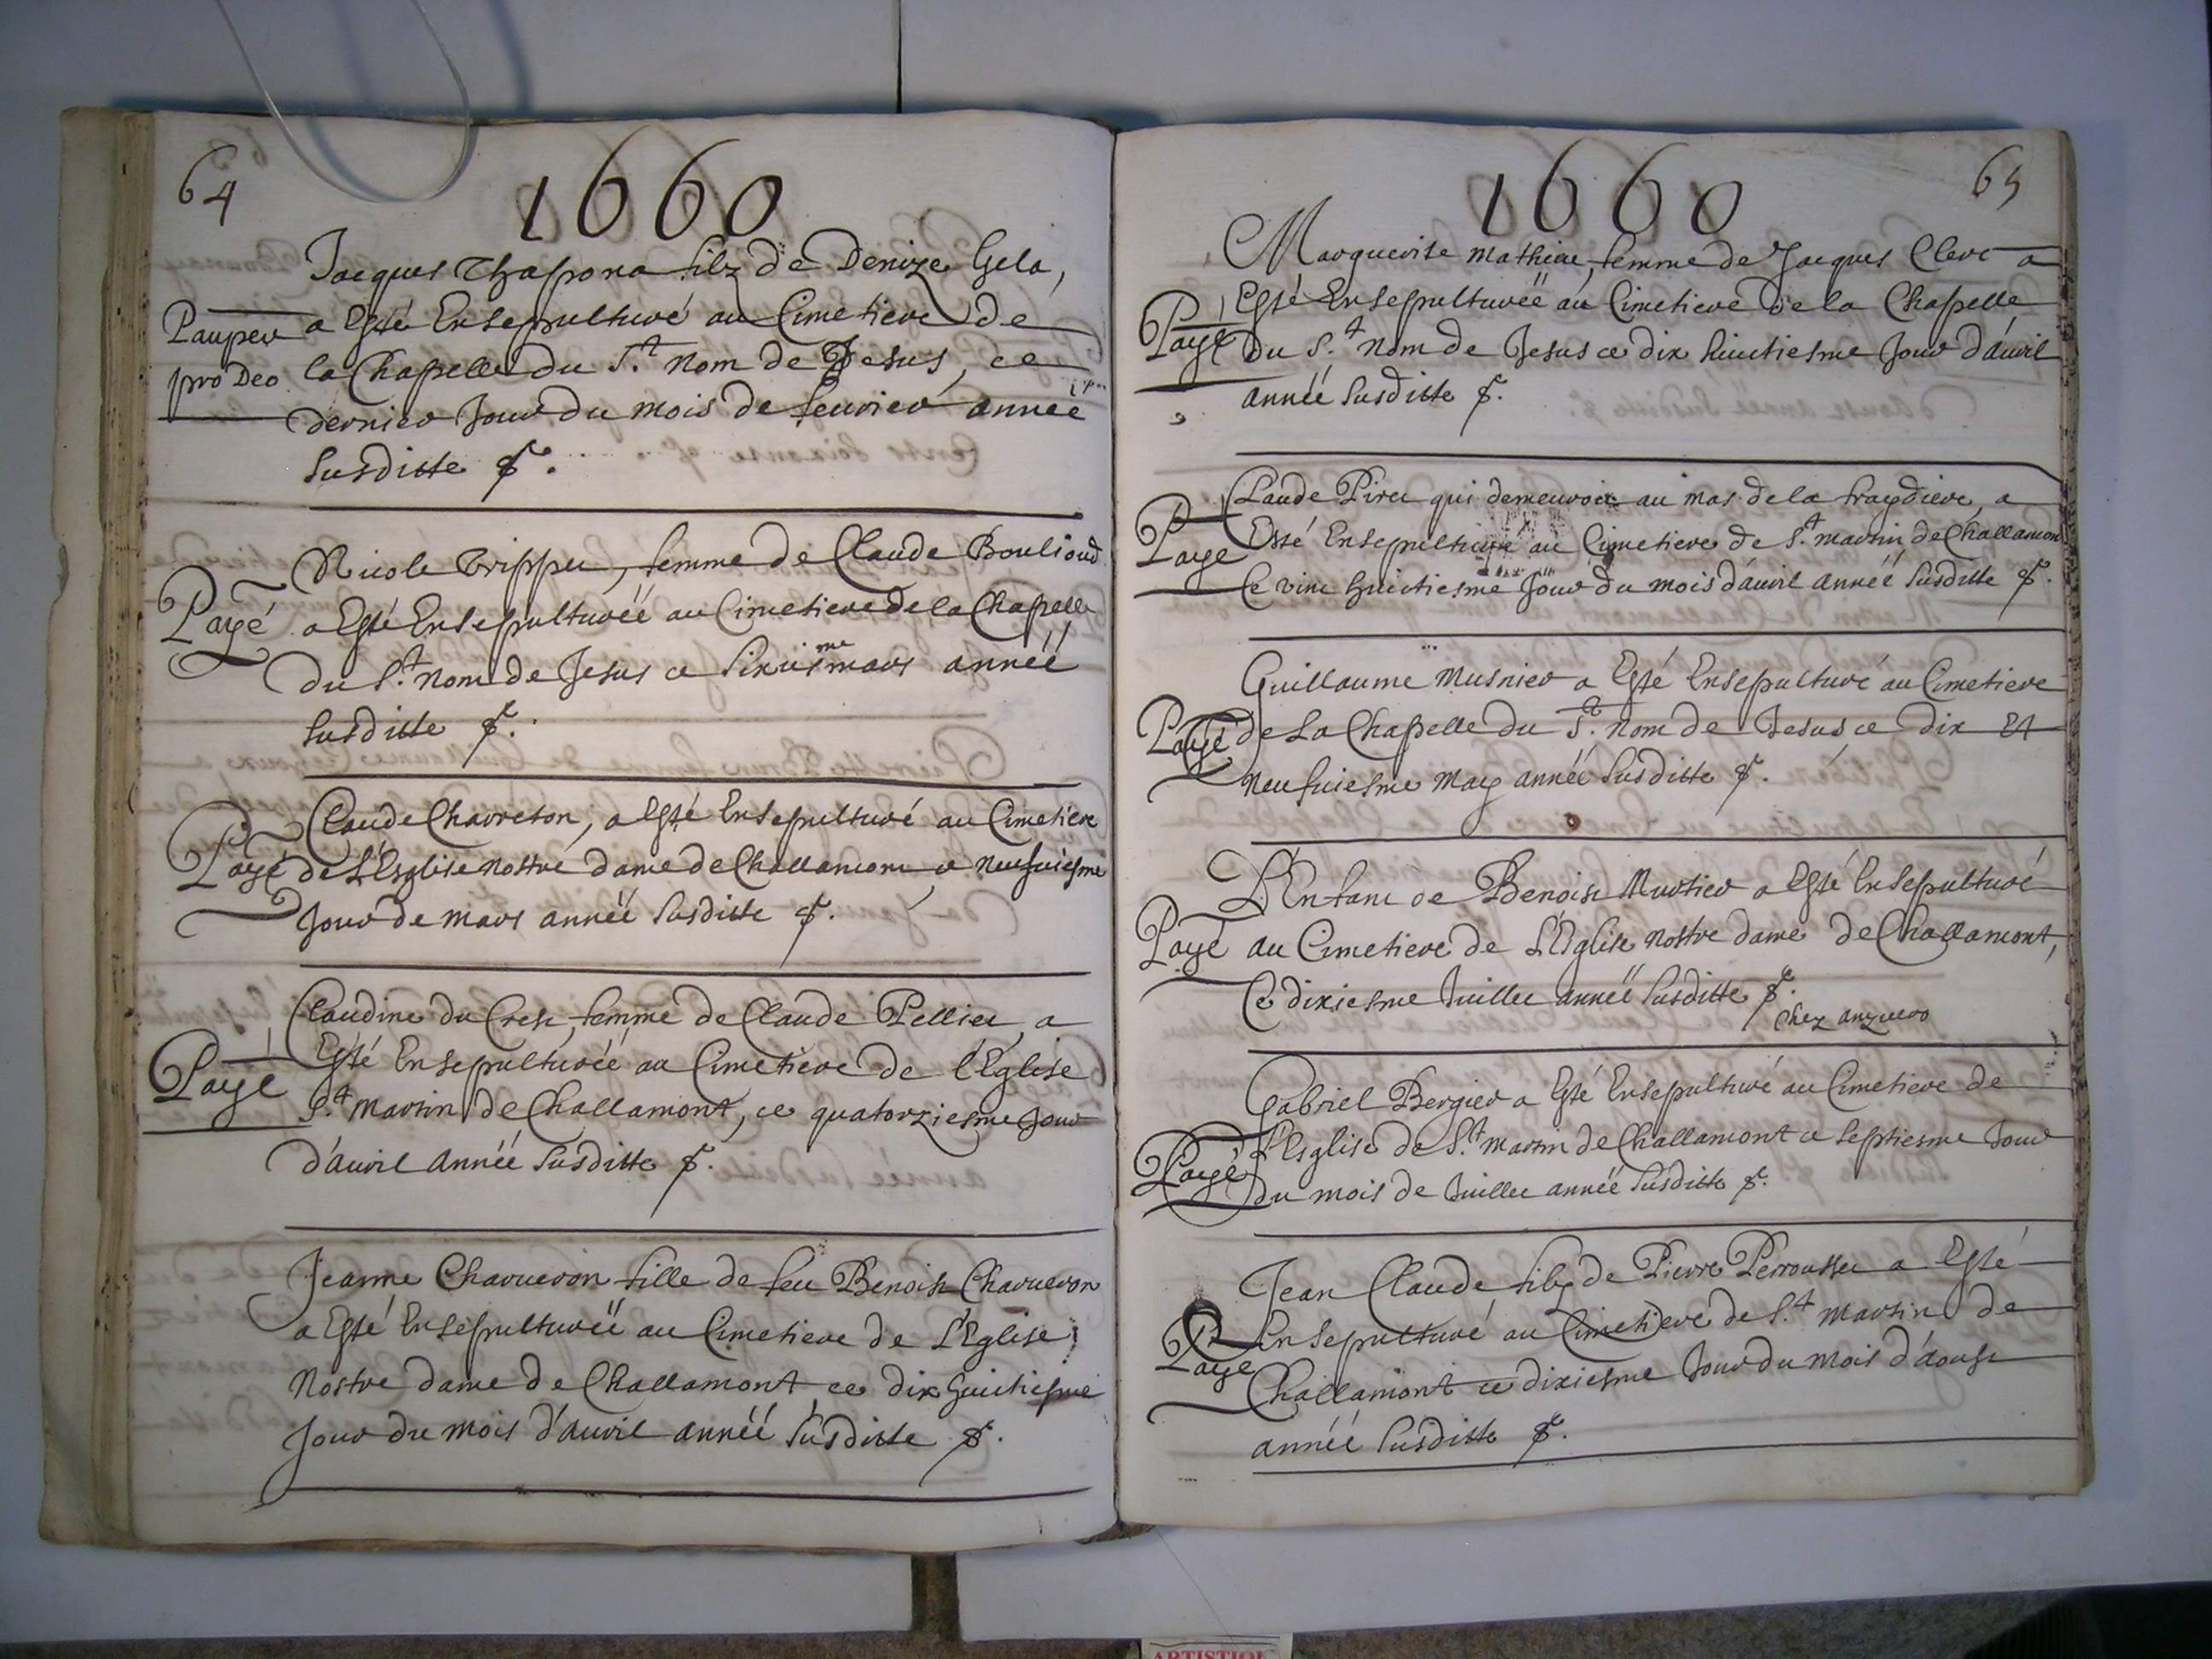 64
1660
Jacques Thapona filz de Denize Gela,
Pauper a Esté Ensepulturé au Cimetiere de
pro Deo la Chapelle du S.t Nom de Jesus, ce
dernier Jour du mois de feurier année
susditte
Nicole Trippet, femme de Claude Boulioud
Payé a Esté Ensepulturéé au Cimetiere de la Chapelle
du S.t Nom de Jesus ce sixiesme mars annéé
susditte
Claude Charreton, a Esté Ensepulturé au Cimetiere
Payé de L'Esglise nostre dame de Challamont ce neufuiesme
Jour de mars annéé susditte
Claudine du Crest, femme de Claude Pellier, a
Payé Esté Ensepulturéé au Cimetiere de l'Eglise
S.t Martin de Challamont, ce quatorziesme Jour
d'auril Annéé susditte
Jeanne Charueron fille de feu Benoist Charueron
a Esté Ensepulturéé au Cimetiere de L'Eglise
Nostre dame de Challamont ce dix huictiesme
Jour du mois d'auril annéé susditte
65
1660
Marguerite mathieu, femme de Jacques Clerc a
Payé Esté Ensepulturéé au Cimetiere de la Chapelle
du S.t Nom de Jesus ce dix huictiesme Jour d'auril
annéé susditte
Claude Piret qui demeuroit au mas de la fraydiere, a
Payé Esté Ensepulturé au Cimetiere de S.t martin de Challamont
Ce vint huictiesme Jour du mois d'auril annéé susditte
Guillaume Musnier a Esté Ensepulturé au Cimetiere
Payé de La Chapelle du S.t Nom de Jesus ce dix et
neufuiesme May annéé susditte
L'Enfant de Benoist Murtier a Esté Ensepulturé
Payé au Cimetiere de L'Eglise Nostre dame de Challamont,
Ce dixiesme Juillet annéé susditte
chez
Gabriel Bergier a Esté Ensepulturé au Cimetiere de
L'Esglise de S.t Martin de Challamont ce septiesme Jour
Payé du mois de Juillet annéé susditte
Jean Claude filz de Pierre Perrousset a Esté
Payé Ensepulturé au Cimetiere de S.t Martin de
Challamont ce dixiesme Jour du mois d'aoust
annéé susditte